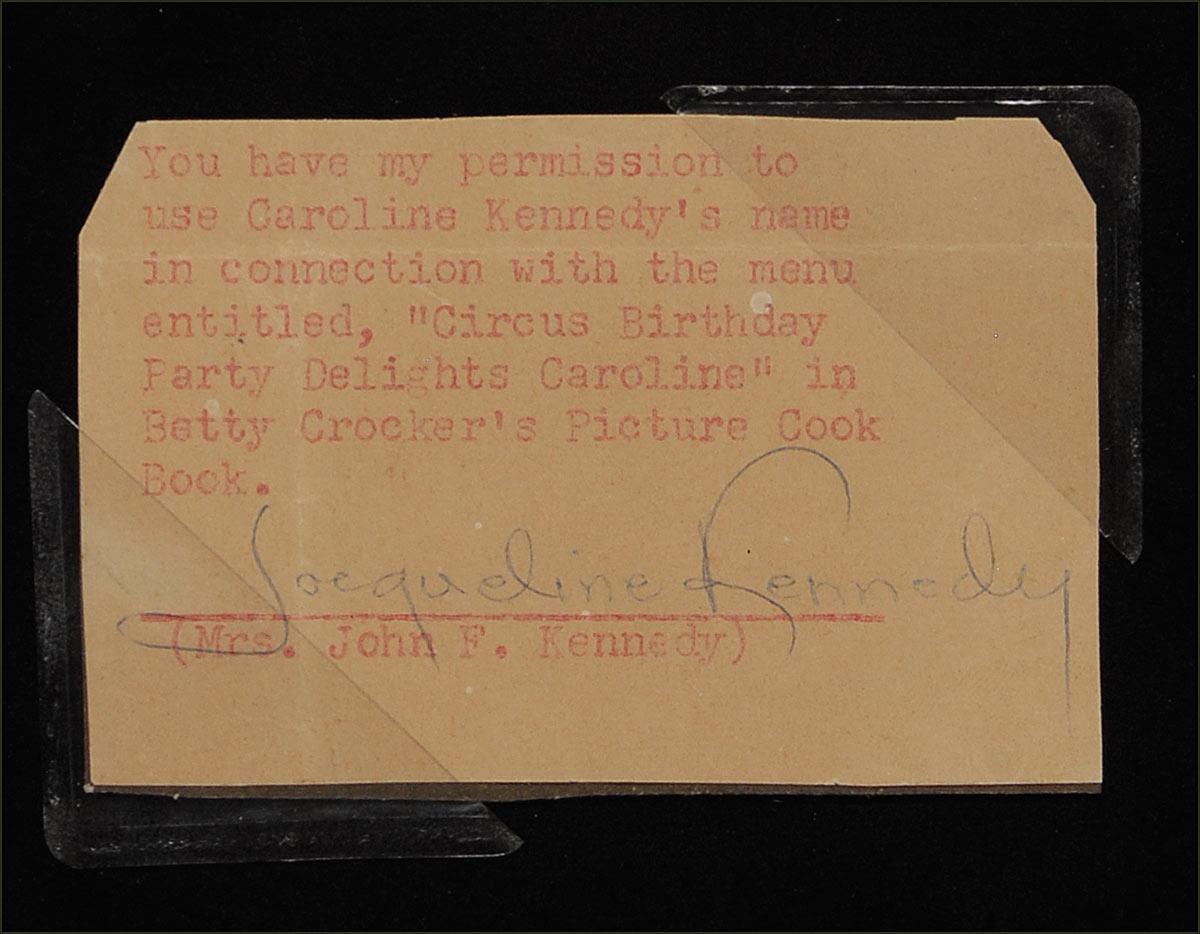 You have my permission to
use Caroline Kennedy's name
in connection with the menu
entitled, "Circus Birthday
Party Delights Caroline" in
Betty Crocker's Picture Cook
Book.
Jacqueline Kennedy
(Mrs. John F. Kennedy)